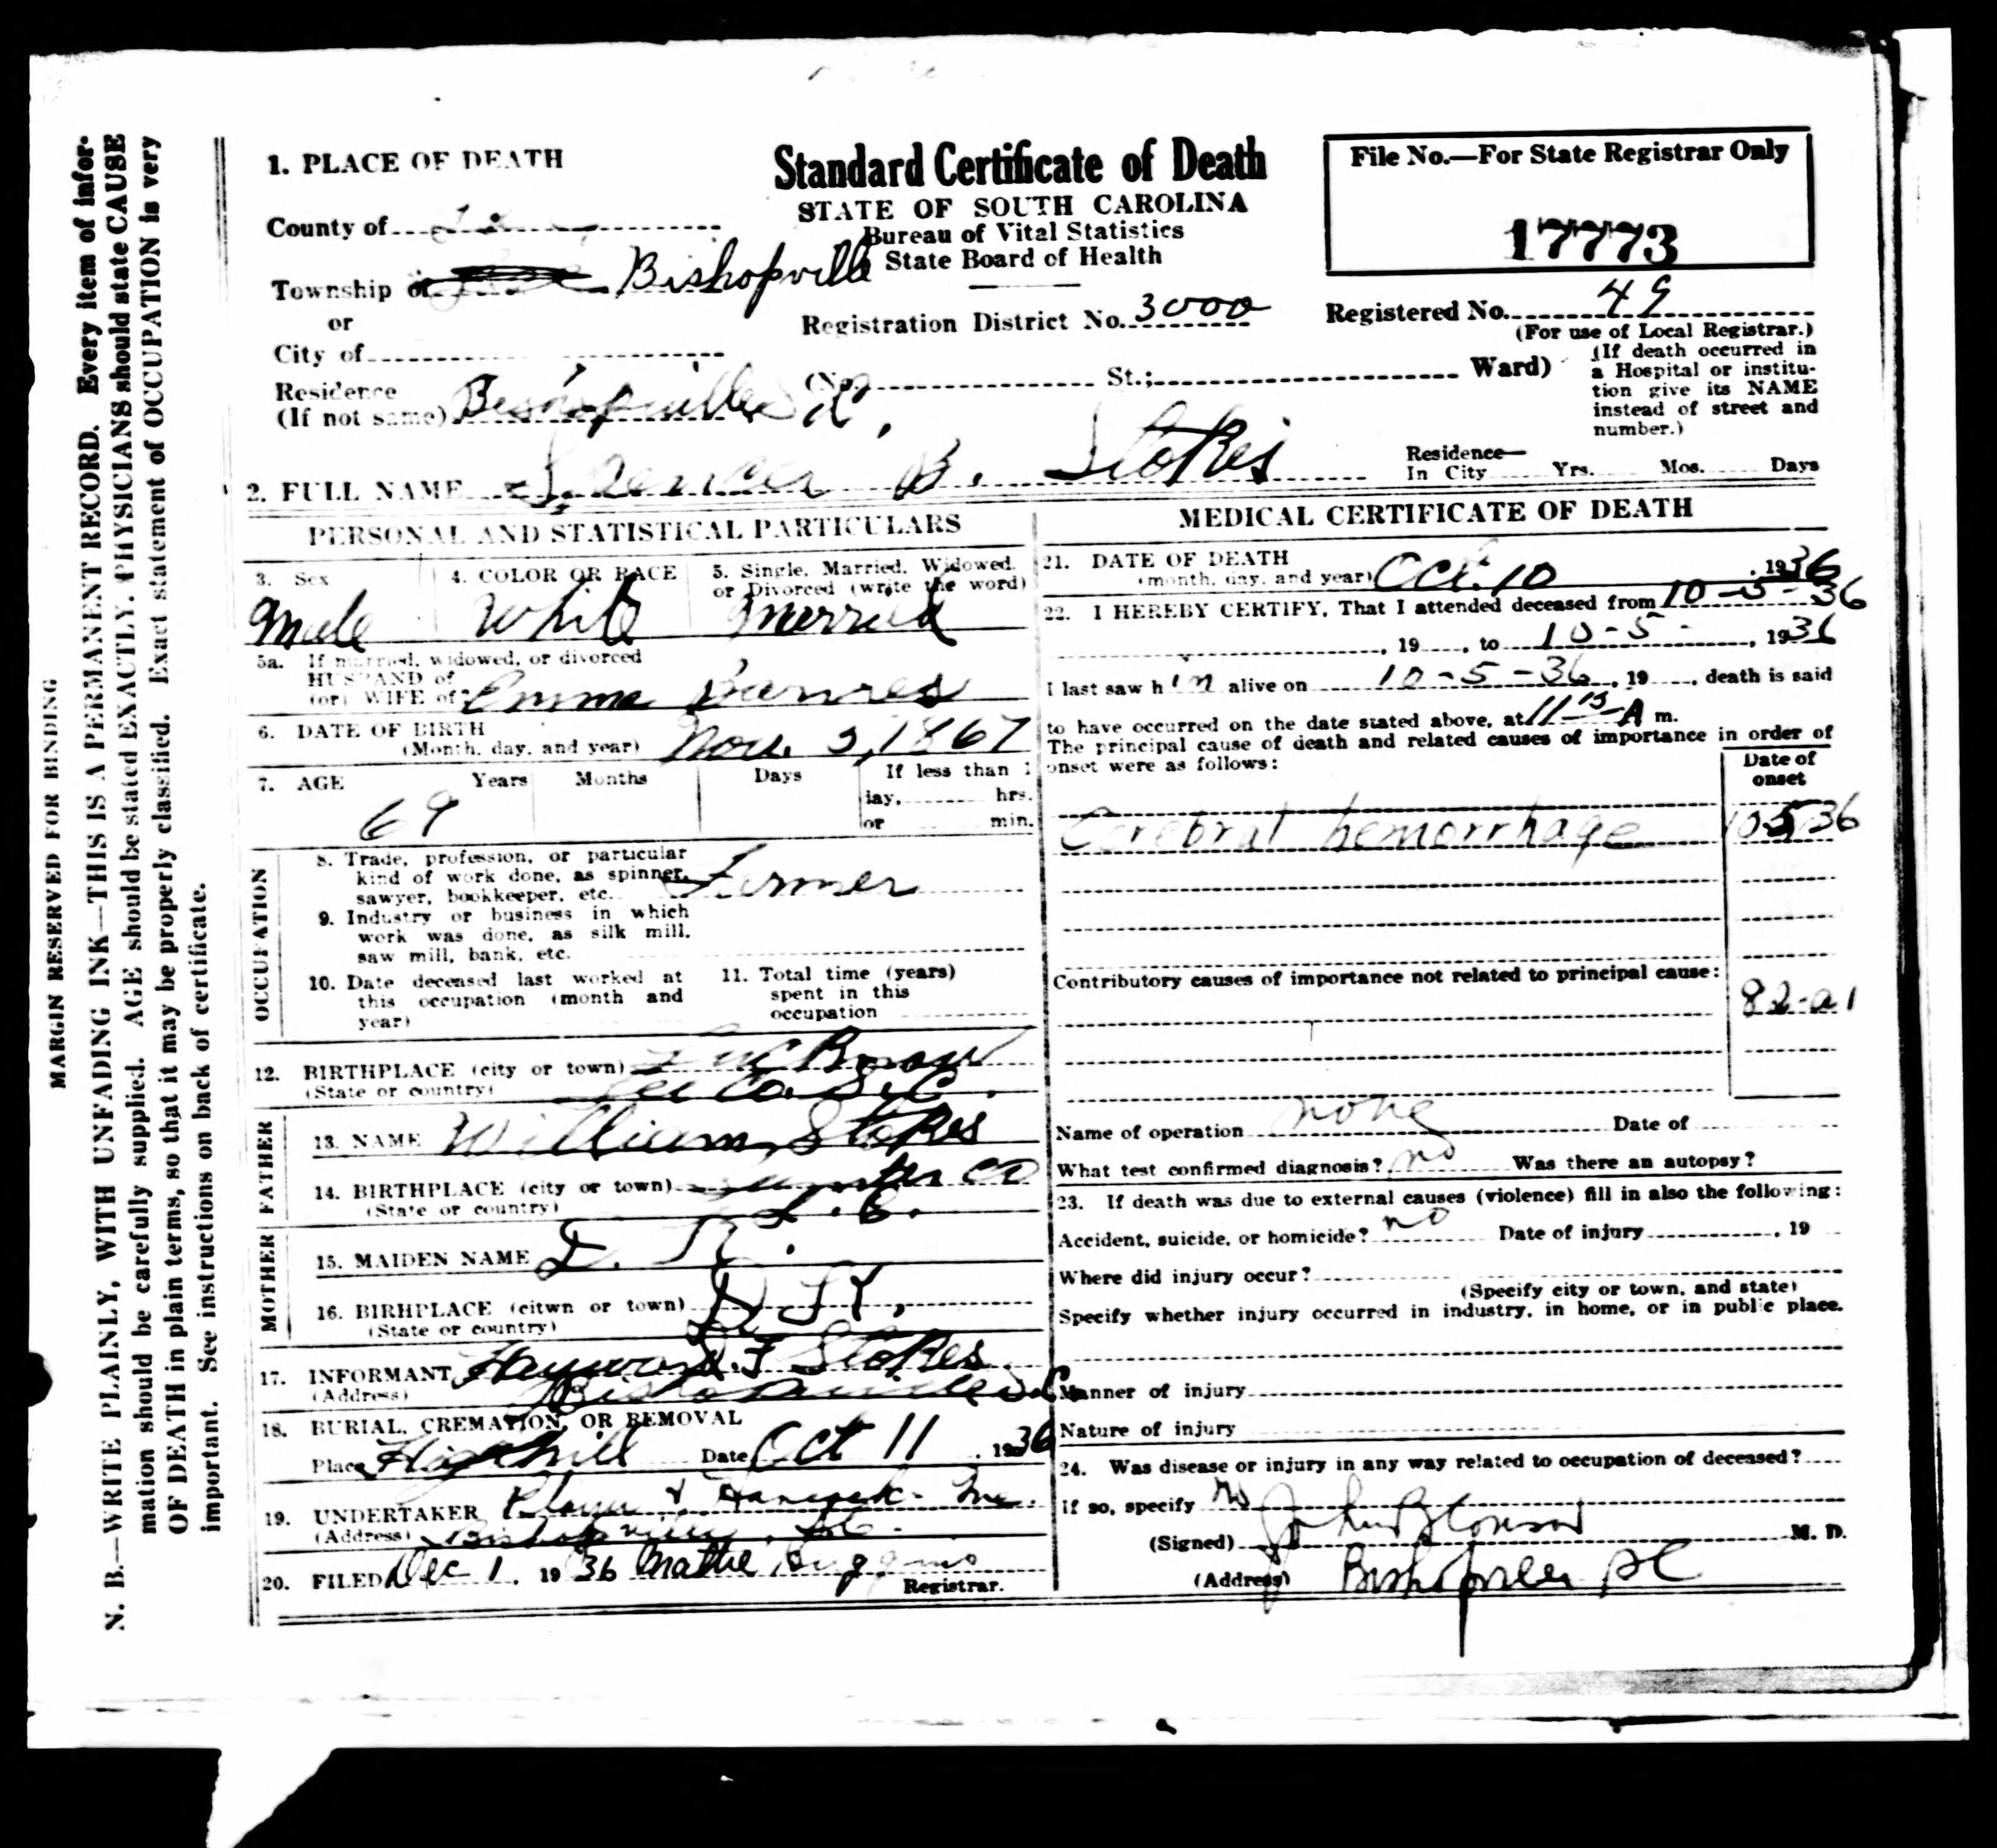 MARGIN RESERVED FOR BINDING
N. B.—WRITE PLAINLY, WITH UNFADING INK—THIS IS A PERMANENT RECORD. Every item of infor-
mation should be carefully supplied. AGE should be stated EXACTLY. PHYSICIANS should state CAUSE
OF DEATH in plain terms, so that it may be properly classified. Exact statement of OCCUPATION is very
important. See instructions on back of certificate.
1. PLACE OF DEATH
County of
Township of Bishopville
or
City of
Residence
(If not same) Bishopville S C,
Standard Certificate of Death
STATE OF SOUTH CAROLINA
Bureau of Vital Statistics
State Board of Health
Registration District No. 3000
(No. St.; Ward)
File No.—For State Registrar Only
17773
Registered No. 49
(For use of Local Registrar.)
(If death occurred in
a Hospital or institu-
tion give its NAME
instead of street and
number.)
2. FULL NAME Spencer B. Stokes
Residence—
In City Yrs. Mos. Days
PERSONAL AND STATISTICAL PARTICULARS
3. Sex
Male
4. COLOR OR RACE
White
5. Single, Married, Widowed,
or Divorced (write the word)
Married
5a. If married, widowed, or divorced
HUSBAND of
(or) WIFE of Emma Barnes
6. DATE OF BIRTH
(Month, day, and year) Nov. 2, 1867
7. AGE Years Months Days If less than 1
day, hrs.
or min.
69
OCCUPATION
8. Trade, profession, or particular
kind of work done, as spinner,
sawyer, bookkeeper, etc. Farmer
9. Industry or business in which
work was done, as silk mill,
saw mill, bank, etc.
10. Date deceased last worked at
this occupation (month and
year)
11. Total time (years)
spent in this
occupation
12. BIRTHPLACE (city or town) Lucknow
(State or country) Lee Co. S. C.
FATHER
13. NAME William Stokes
14. BIRTHPLACE (city or town) Sumter CO
(State or country) S. C.
MOTHER
15. MAIDEN NAME D. K.
16. BIRHPLACE (citwn or town) D. K.
(State or country)
17. INFORMANT Hayward F Stokes
(Address) Bishopville S. C.
18. BURIAL, CREMATION, OR REMOVAL
Place Highhill Date Oct 11, 1936
19. UNDERTAKER & Hancock Inc.
(Address) Bishopville, S C.
20. FILED Dec 1, 1936 Mattie
Registrar.
MEDICAL CERTIFICATE OF DEATH
21. DATE OF DEATH
(month, day, and year) Oct. 10, 1936
22. I HEREBY CERTIFY, That I attended deceased from 10-5-36
, 19 , to 10-5-, 1936
I last saw him alive on 10-5-36, 19 , death is said
to have occurred on the date stated above, at 11 15 A m.
The principal cause of death and related causes of importance in order of
onset were as follows:
Date of
onset
Cerebral hemorrhage 10 5 36
Contributory causes of importance not related to principal cause:
82-a1
Name of operation none Date of
What test confirmed diagnosis? no Was there an autopsy?
23. If death was due to external causes (violence) fill in also the following:
Accident, suicide, or homicide? no Date of injury , 19
Where did injury occur?
(Specify city or town, and state)
Specify whether injury occurred in industry, in home, or in public place.
Manner of injury
Nature of injury
24. Was disease or injury in any way related to occupation of deceased?
If so, specify No
(Signed) M. D.
(Address) Bishopville SC